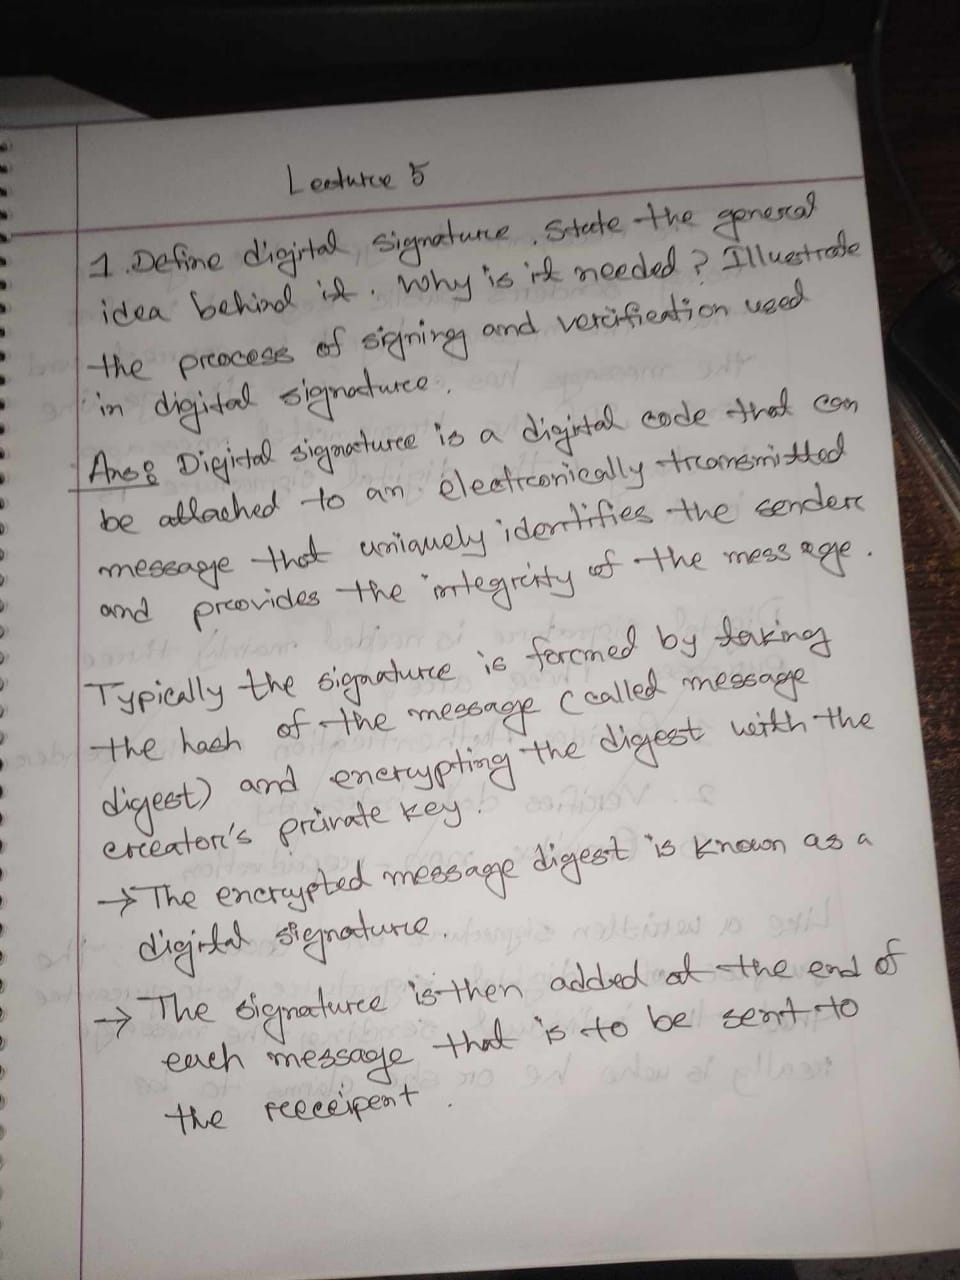 Lecture 5
1. Define digital signature. State the general
idea behind it. Why is it needed? Illustrate
the process of signing and verification used
in digital signature.
Ans: Digital signature is a digital code that can
be attached to an electronically transmitted
message that uniquely identifies the sender
and provides the integrity of the message.
Typically the signature is formed by taking
the hash of the message (called message
digest) and encrypting the digest with the
creator's private key.
→ The encrypted message digest is known as a
digital signature.
→ The signature is then added at the end of
each message that is to be sent to
the receipent.